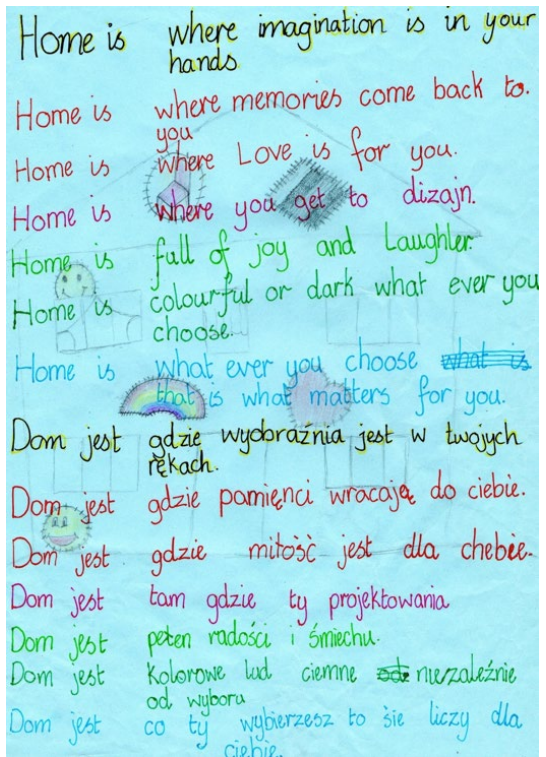 Home is where imagination is in your
hands.
Home is where memories come back to.
you
Home is where Love is for you.
Home is where you get to dizajn.
Home is full of joy and Laughler.
Home is colourful or dark what ever you
choose.
Home is what ever you choose what is
that is what matters for you.
Dom jest gdzie wyobraźnia jest w twojych
rękach.
Dom jest gdzie pamięnci wracają do ciebie.
Dom jest gdzie miłość jest dla chebie.
Dom jest tam gdzie ty projektowania
Dom jest pełen radości i śmiechu.
Dom jest kolorowe lud ciemne nie/zaleźnie
od wyboru
Dom jest co ty wybierzesz to śie liczy dla
ciebie.